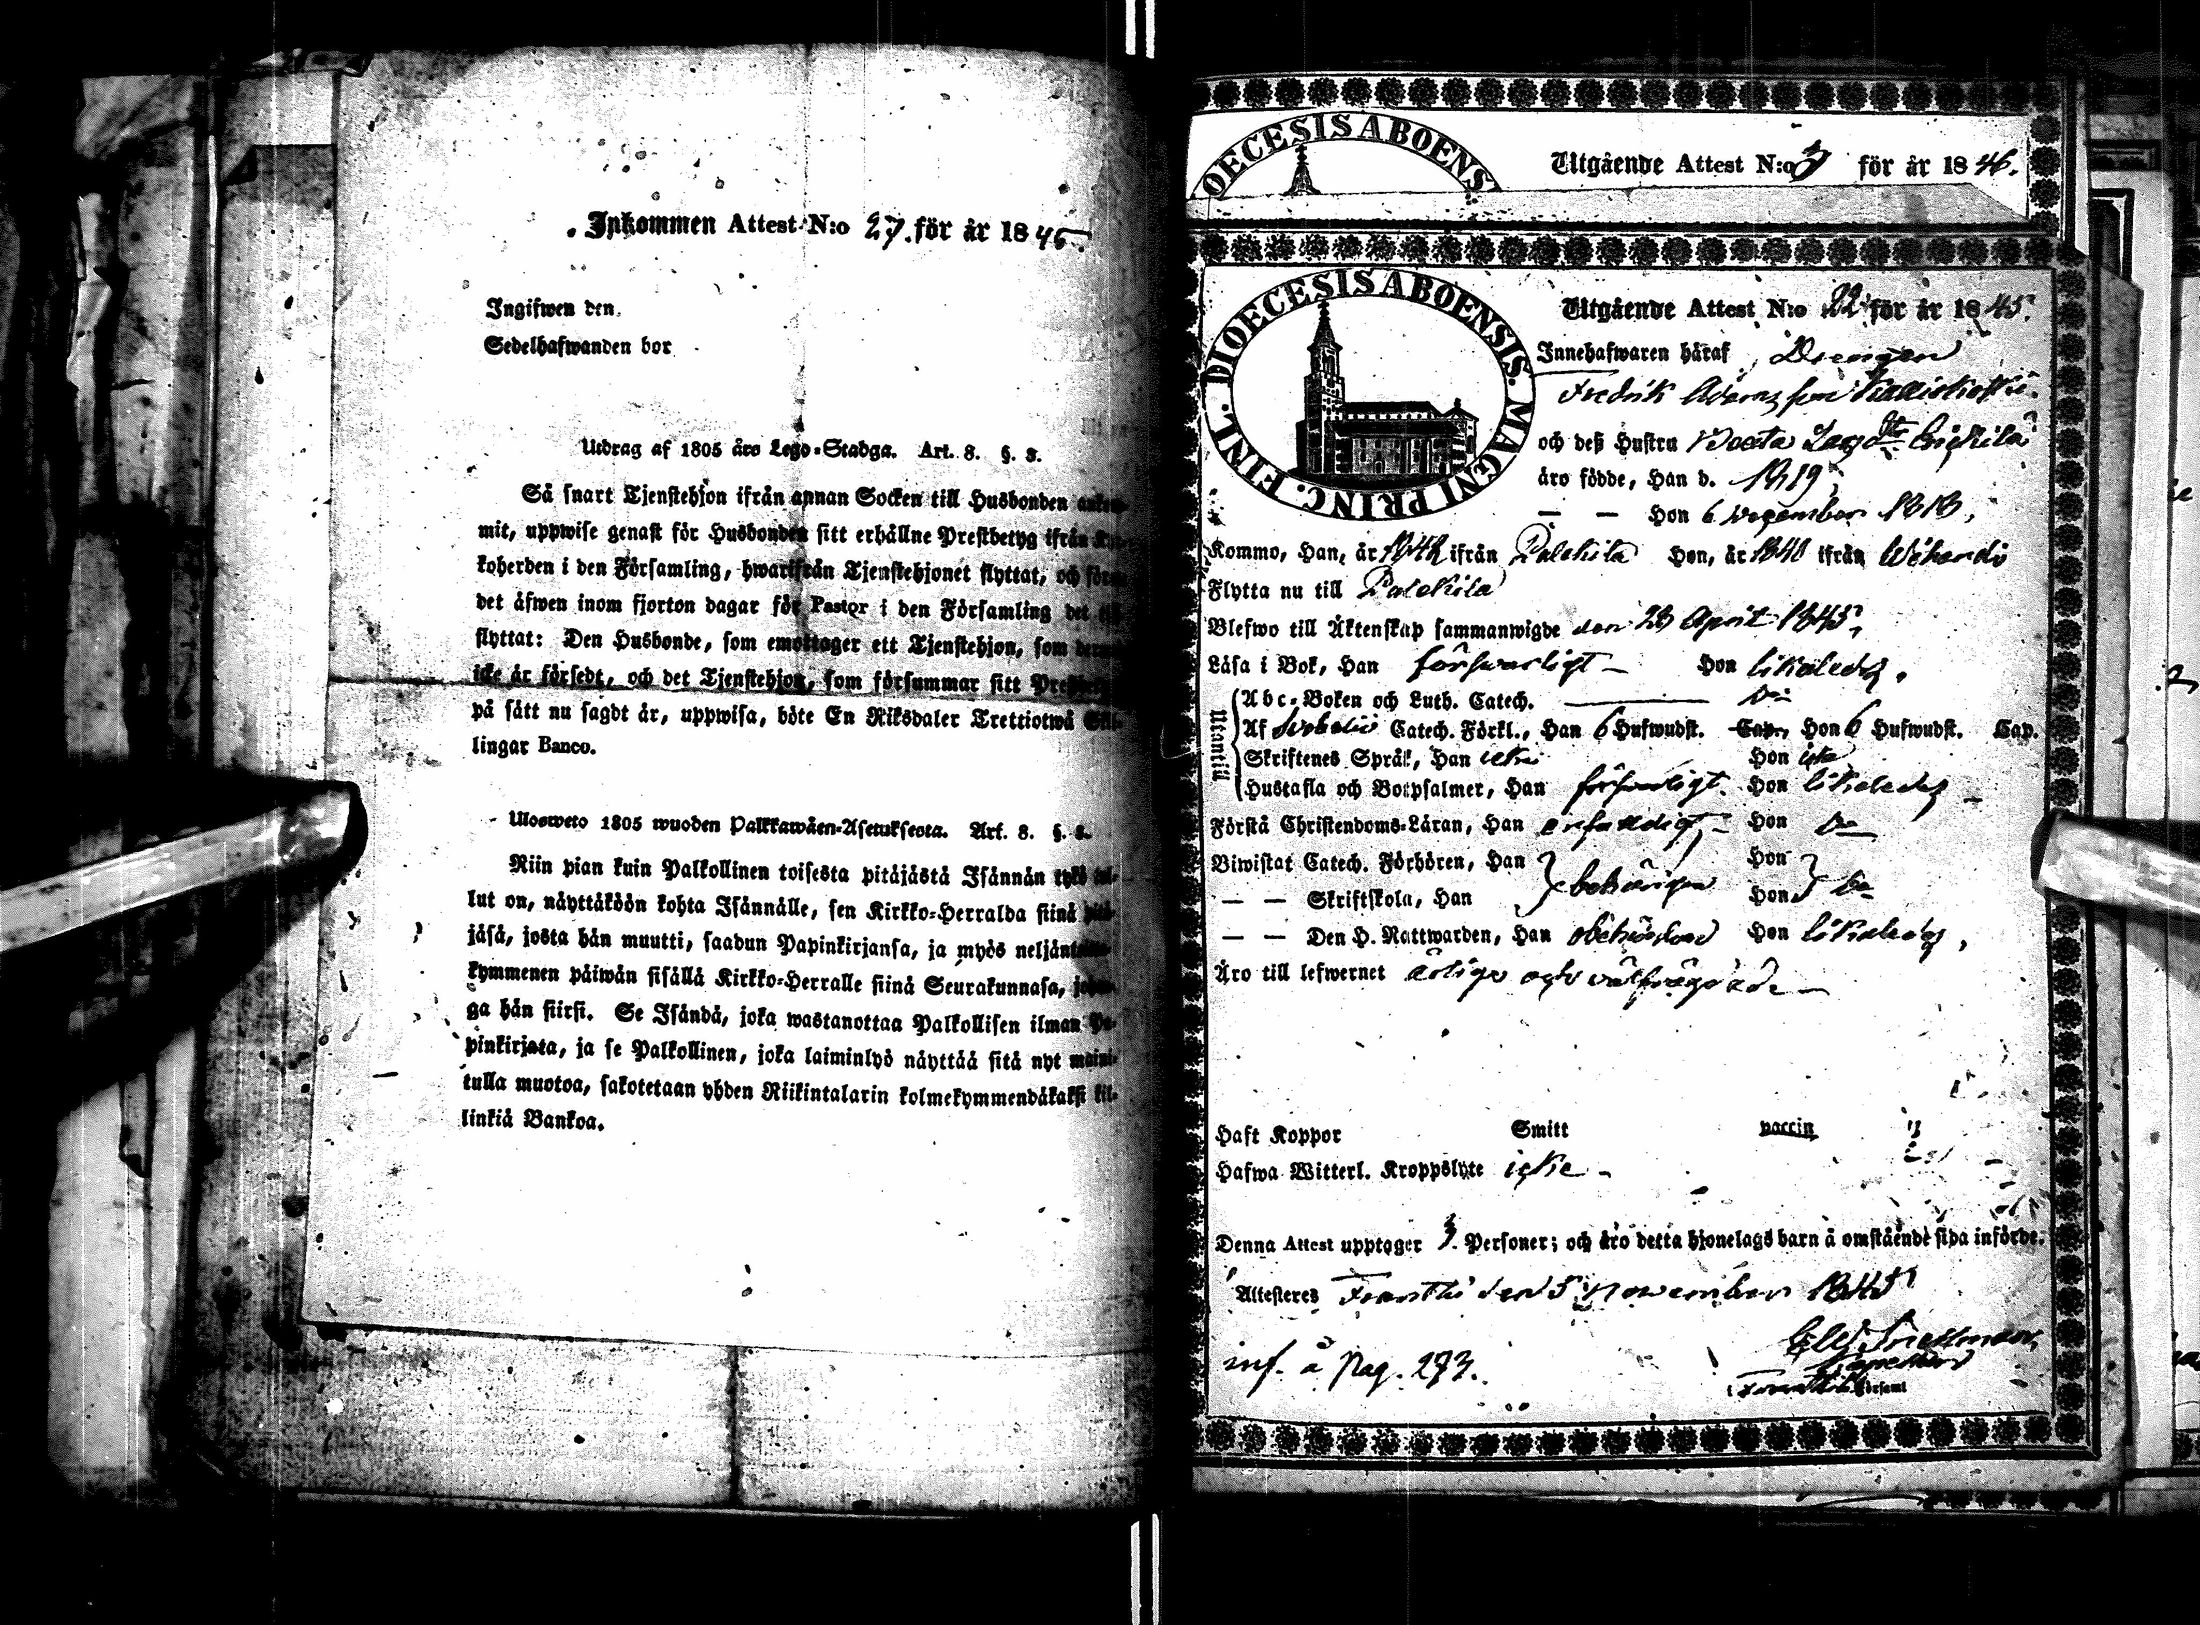 Inkommen Attest N:o 27. för år 1845.
Ingifwen den
Sedelhafwanden bor
Utdrag af 1805 års Lego-Stadga. Art. 8. §. 3.
Så snart Tjenstehjon ifrån annan Socken till Husbonden
mit, uppwise genast för Husbonden sitt erhållne Prestbetyg ifrån
koherden i den Församling, hwarifrån Tjenstehjonet flyttat, och
det äfwen inom fjorton dagar för Pastor i den Församling det
flyttat: Den Husbonde, som emottager ett Tjenstehjon, som
icke är försedt, och det Tjenstehjon, som försummar sitt
på sätt nu sagdt är, uppwisa, böte En Riksdaler Trettiotwå Skil-
lingar Banco.
Ulosweto 1805 wuoden Palkkawäen-Asetuksesta. Art. 8. §.
Niin pian kuin Palkollinen toisesta pitäjästä Isännän tykö tul-
lut on, näyttäköön kohta Isännälle, sen Kirkko-Herralda siinä
jäsä, josta hän muutti, saadun Papinkirjansa, ja myös neljän
kymmenen päiwän sisällä Kirkko-Herralle siinä Seurakunnasa,
ga hän siirsi. Se Isändä, joka wastanottaa Palkollisen ilman Pa-
pinkirjata, ja se Palkollinen, joka laiminlyö näyttää sitä nyt maini-
tulla muotoa, sakotetaan yhden Riikintalarin kolmekymmendäkaksi kil-
linkiä Bankoa.
DIOECESIS ABOENS
Utgående Attest N:o 3 för år 1846.
DIOECESIS ABOENSIS. MAGNI PRINC. FINL.
Utgående Attest N:o 22 för år 1845.
Innehafwaren häraf Drengen
Fredrik Adamsson
och deß Hustru Beata
äro födde, Han d. 1819,
— — Hon 6 December 1818,
Kommo, Han, år 1842 ifrån Palckila Hon, år 1840 ifrån
Flytta nu till Palckila
Blefwo till Äktenskap sammanwigde den 28 April 1845,
Läsa i Bok, Han förswarligt — Hon likaledes,
Mentil
Abc-Boken och Luth. Catech. — Do
Af Swebelii Catech. Förkl., Han 6 Hufwudst. Cap., Hon 6 Hufwudst. Cap.
Skriftenes Språk, Han icke Hon icke
Hustafla och Botpsalmer, Han förswarligt. Hon likaledes —
Förstå Christendoms-Läran, Han Hon Do
Biwistat Catech. Förhören, Han Hon
— — Skriftskola, Han behörigen Hon Do
— — Den H. Nattwarden, Han obehindrad Hon likaledes,
Äro till lefwernet ärlige och wälfrägdade —
Haft Koppor Smitt vaccin
Hafwa Witterl. Kroppslyte icke —
Denna Attest upptager 3. Personer; och äro detta hjonelags barn å omstående sida införde.
Attesteres den 5 November 1845
inf. å Pag. 273.
Församl